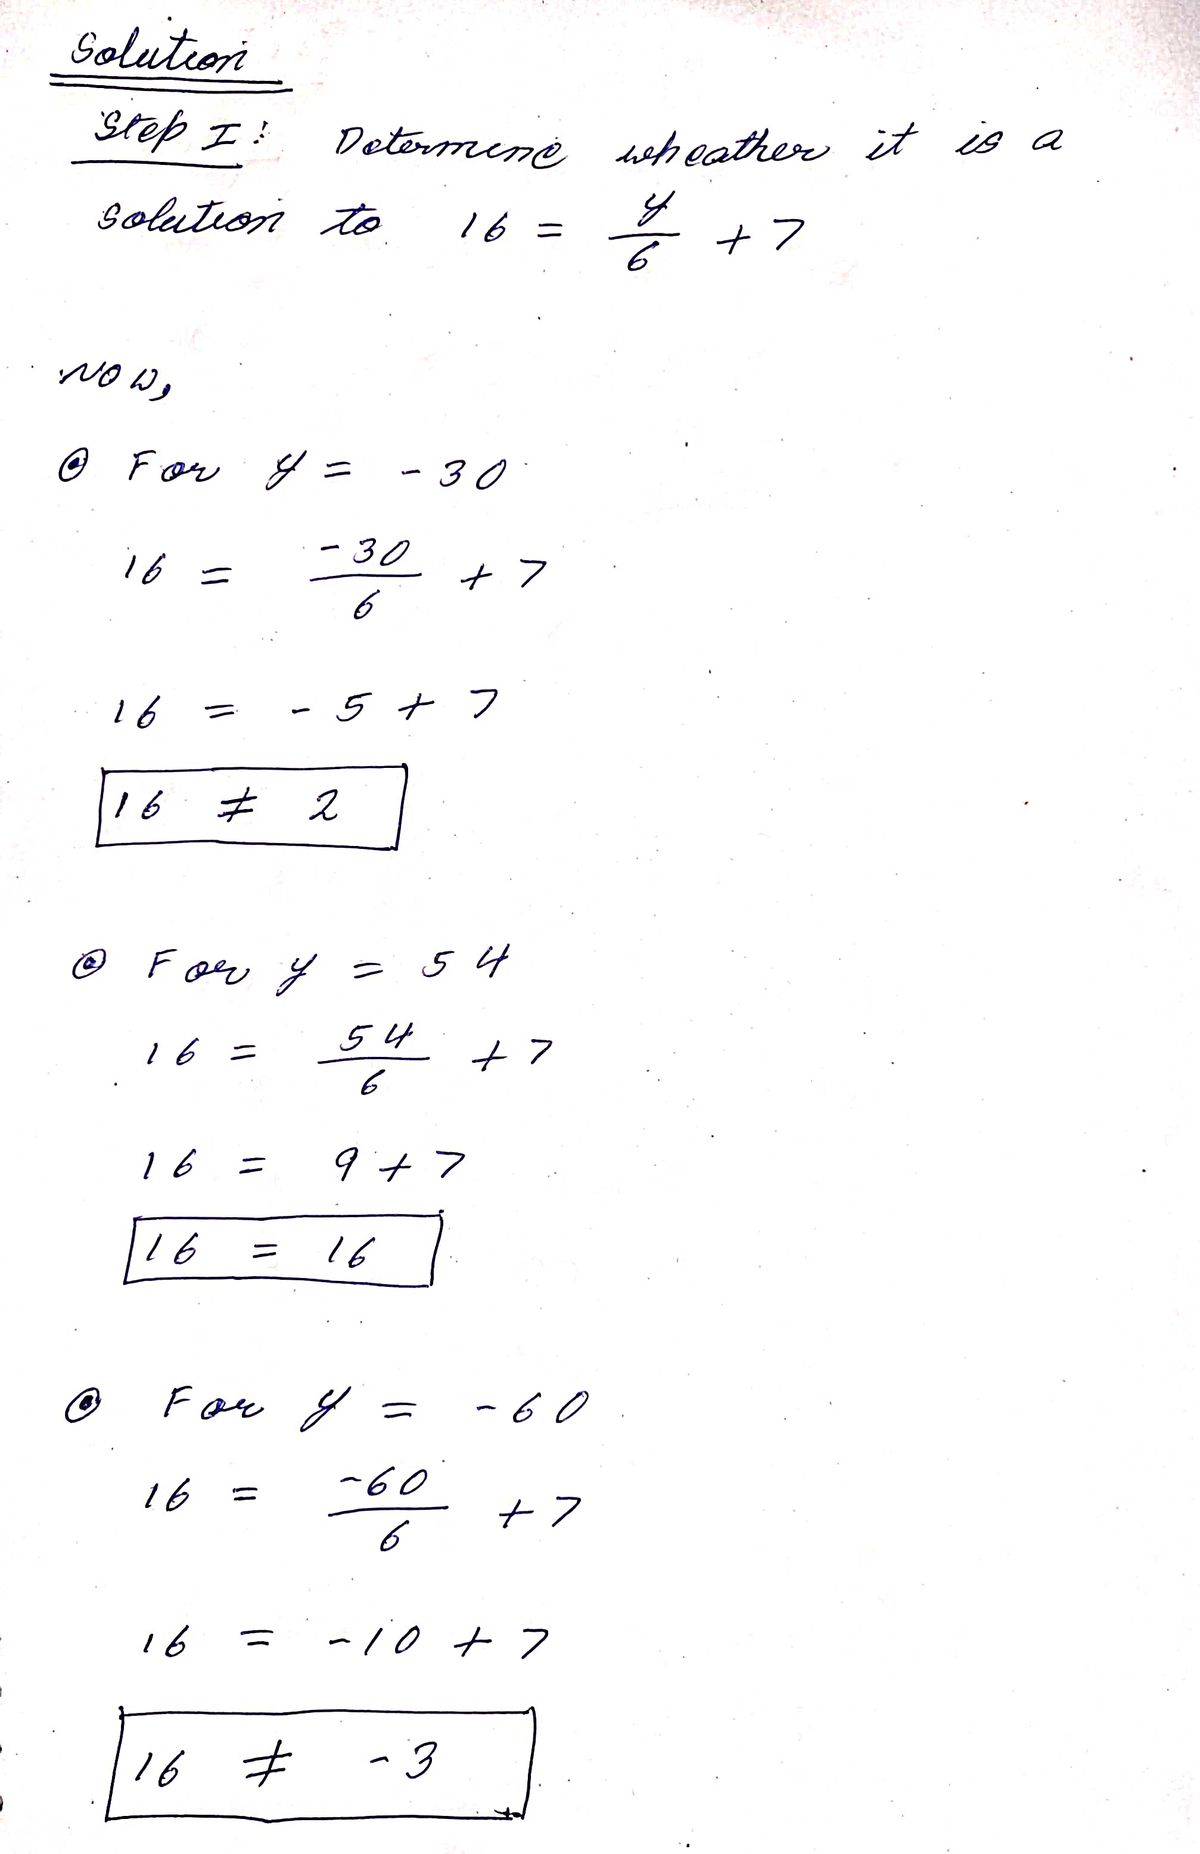 Solution
Step I: Determine wheather it is a
solution to 16 = y/6 + 7
Now,
⊙ For y = -30
16 = -30/6 + 7
16 = -5 + 7
16 ≠ 2
⊙ For y = 54
16 = 54/6 + 7
16 = 9 + 7
16 = 16
⊙ For y = -60
16 = -60/6 + 7
16 = -10 + 7
16 ≠ -3